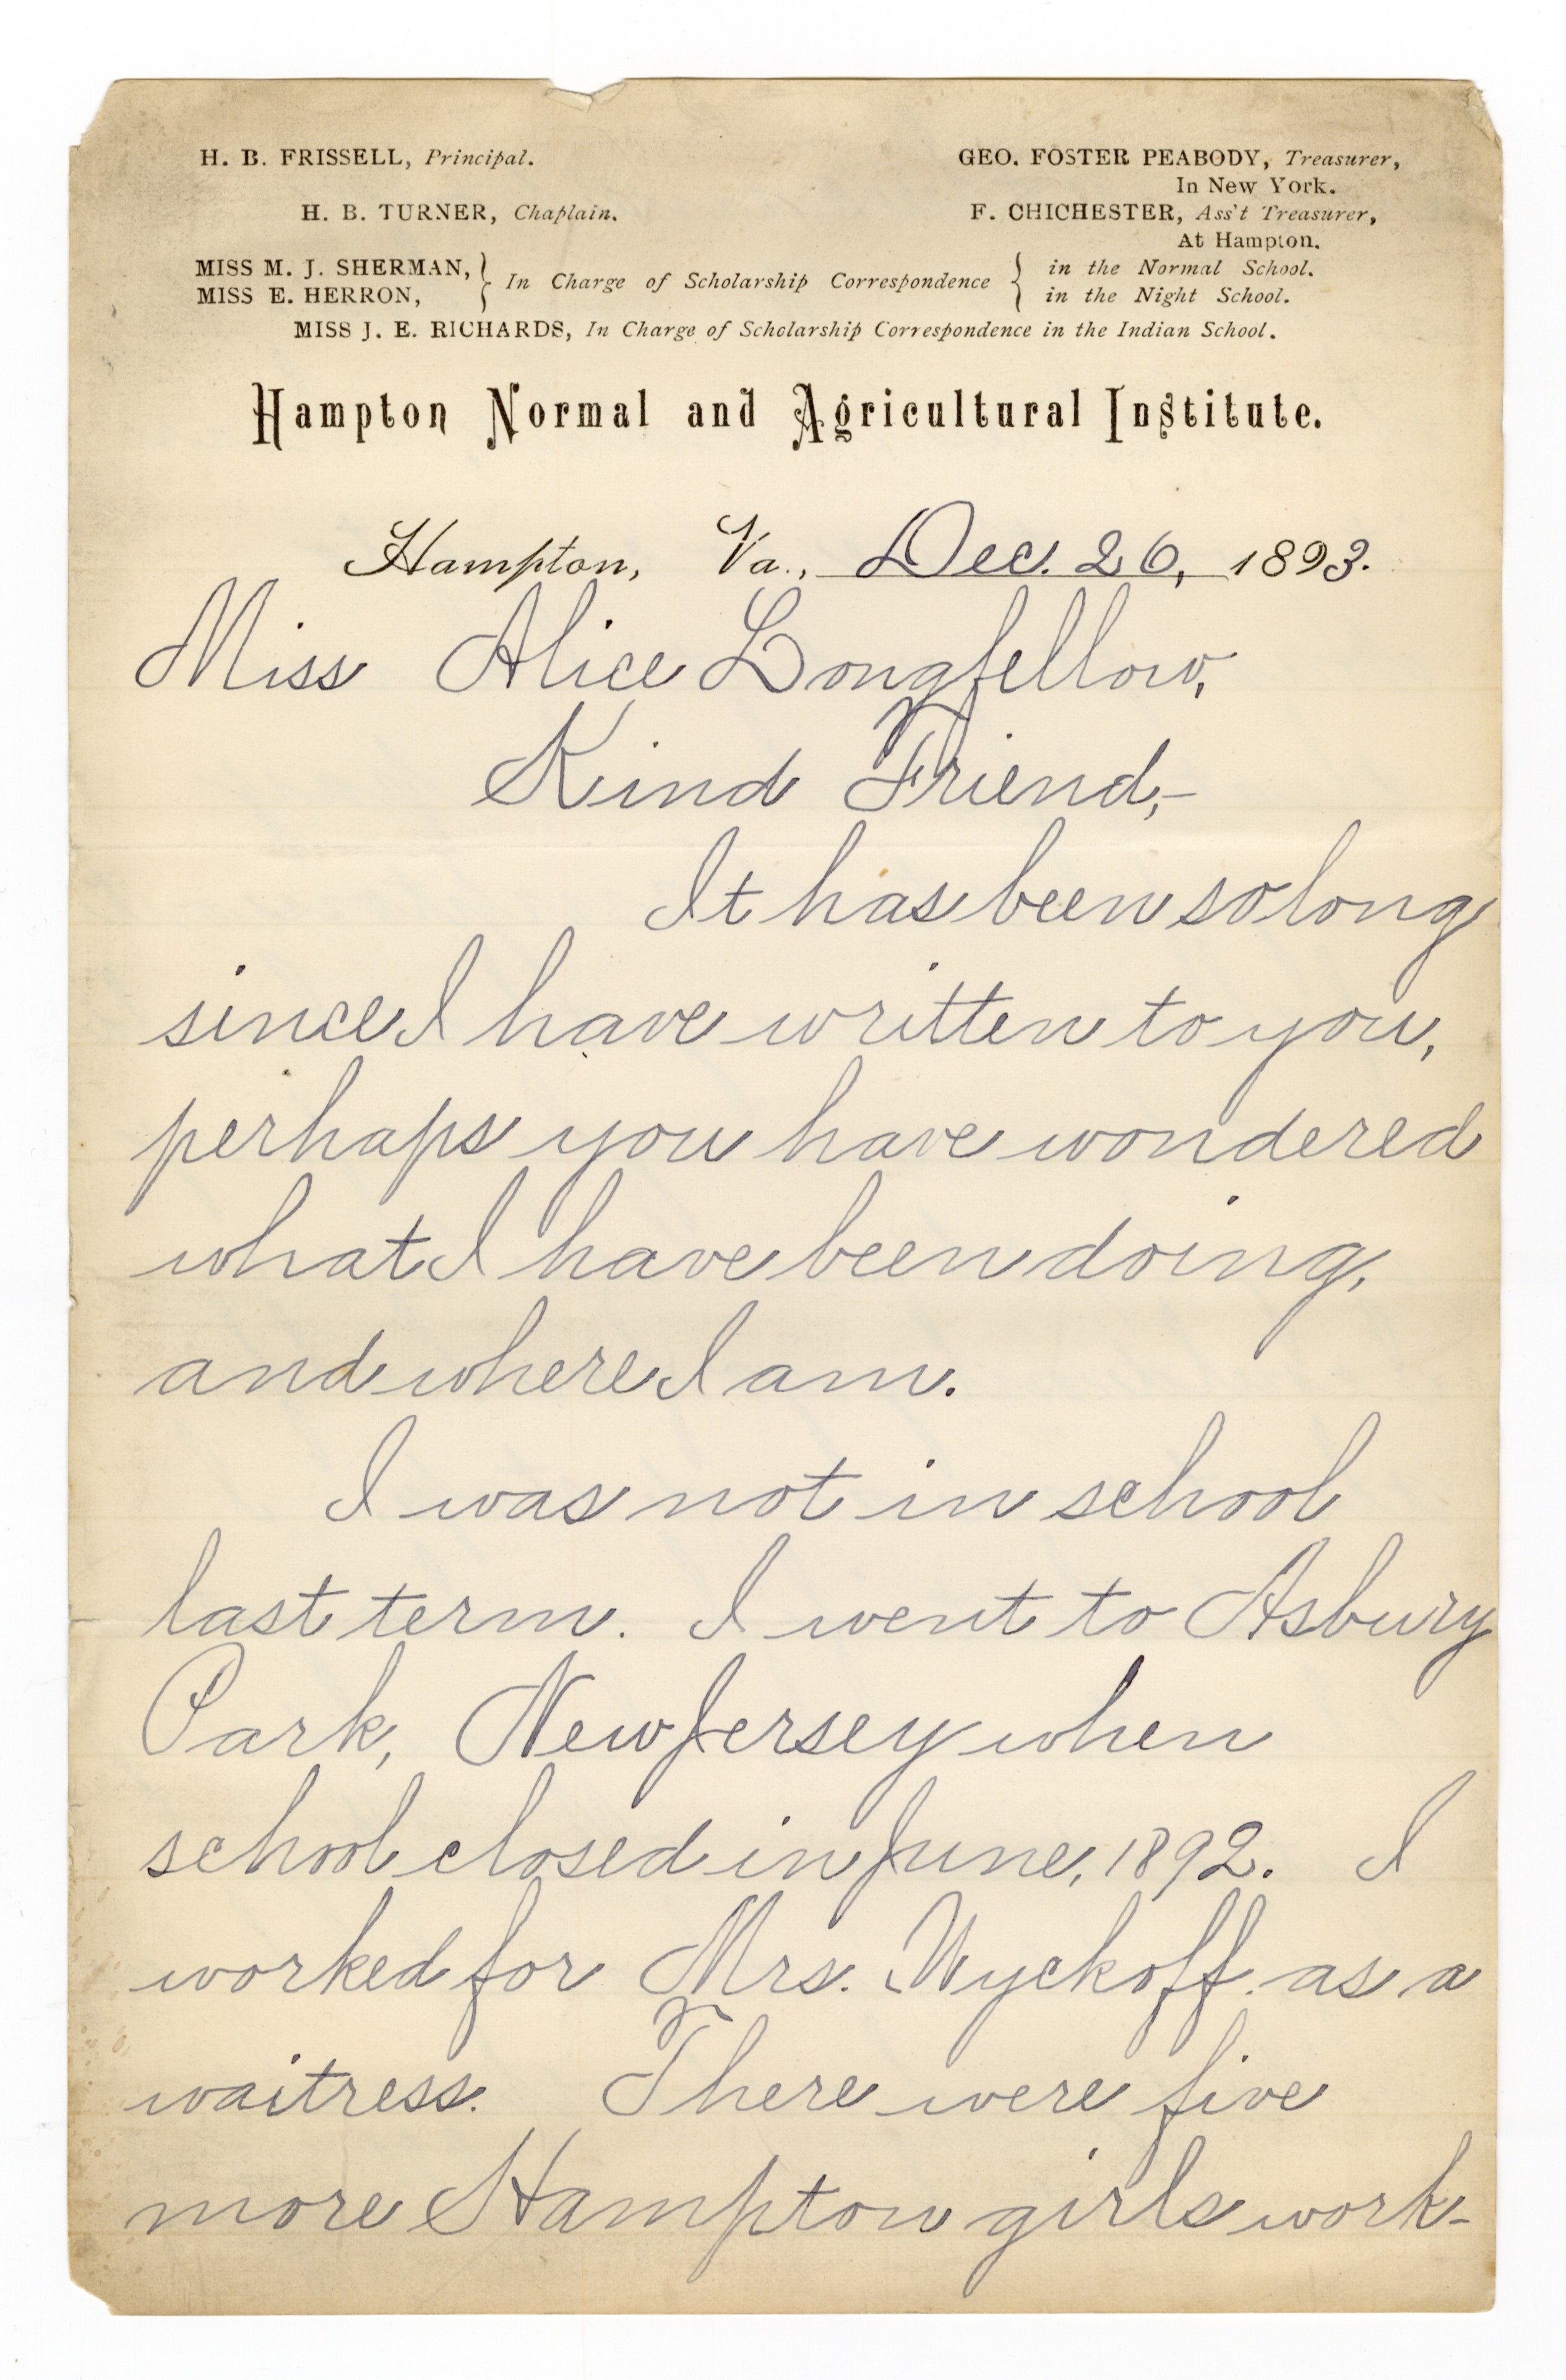 H. B. FRISSELL, Principal.
GEO. FOSTER PEABODY, Treasurer,
In New York.
H. B. TURNER, Chaplain.
F. CHICHESTER, Ass't Treasurer,
At Hampton.
MISS M. J. SHERMAN,
MISS E. HERRON,
In Charge of Scholarship Correspondence
in the Normal School.
in the Night School.
MISS J. E. RICHARDS, In Charge of Scholarship Correspondence in the Indian School.
Hampton Normal and Agricultural Institute.
Hampton, Va., Dec. 26, 1893.
Miss Alice Longfellow,
Kind Friend,-
It has been so long
since I have written to you,
perhaps you have wondered
what I have been doing,
and where I am.
I was not in school
last term. I went to Asbury
Park, New Jersey when
school closed in June, 1892. I
worked for Mrs. Wyckoff. as a
waitress. There were five
more Hampton girls work-